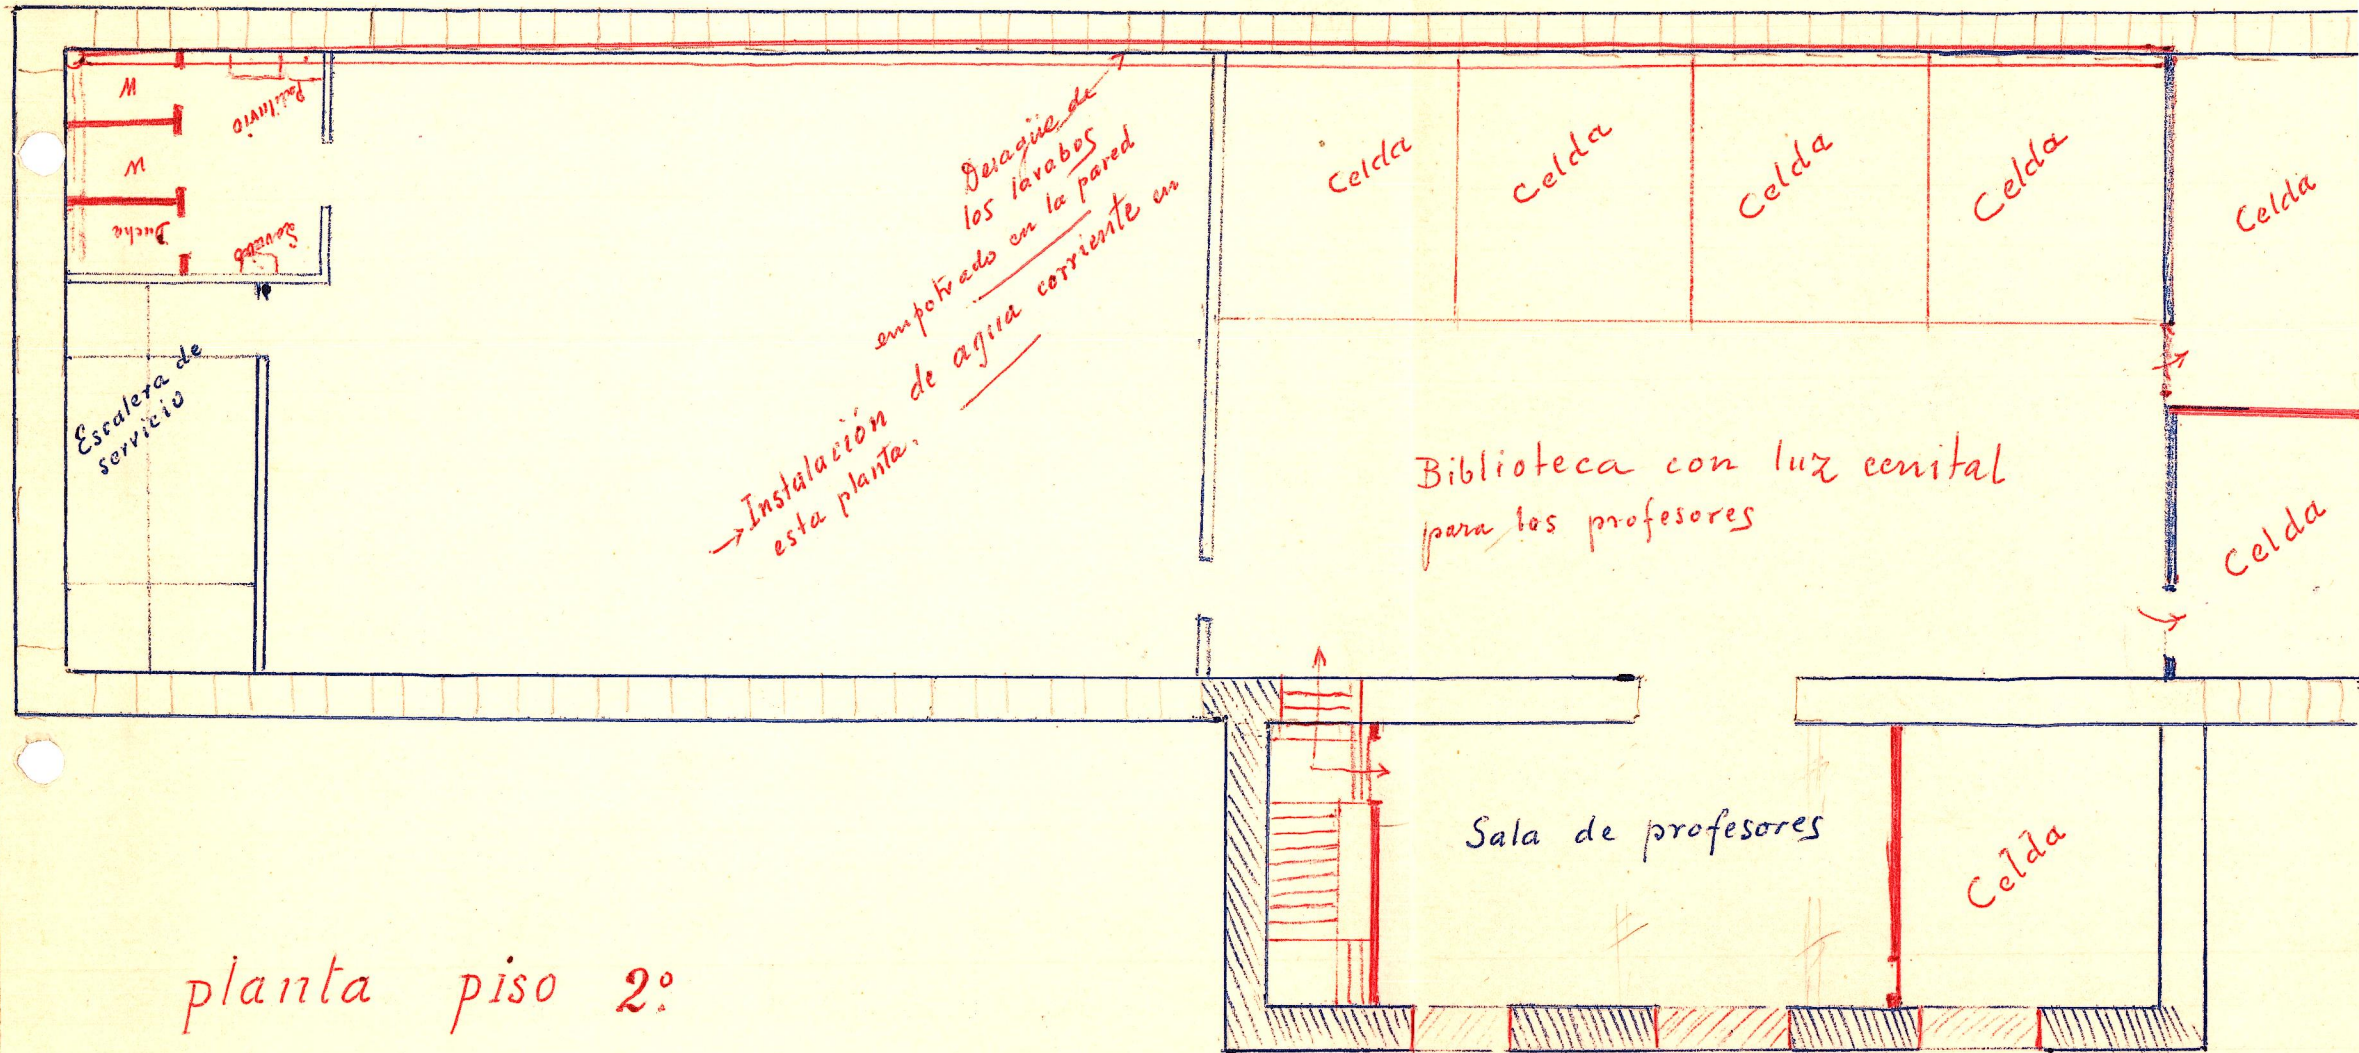 W
Pediluvio
W
Ducha
Lavabo
Escalera de
servicio
Desagüe de
los lavabos
empotrado en la pared
→ Instalación de agua corriente en
esta planta.
Celda
Celda
Celda
Celda
Celda
Biblioteca con luz cenital
para los profesores
Celda
Sala de profesores
Celda
planta piso 2º